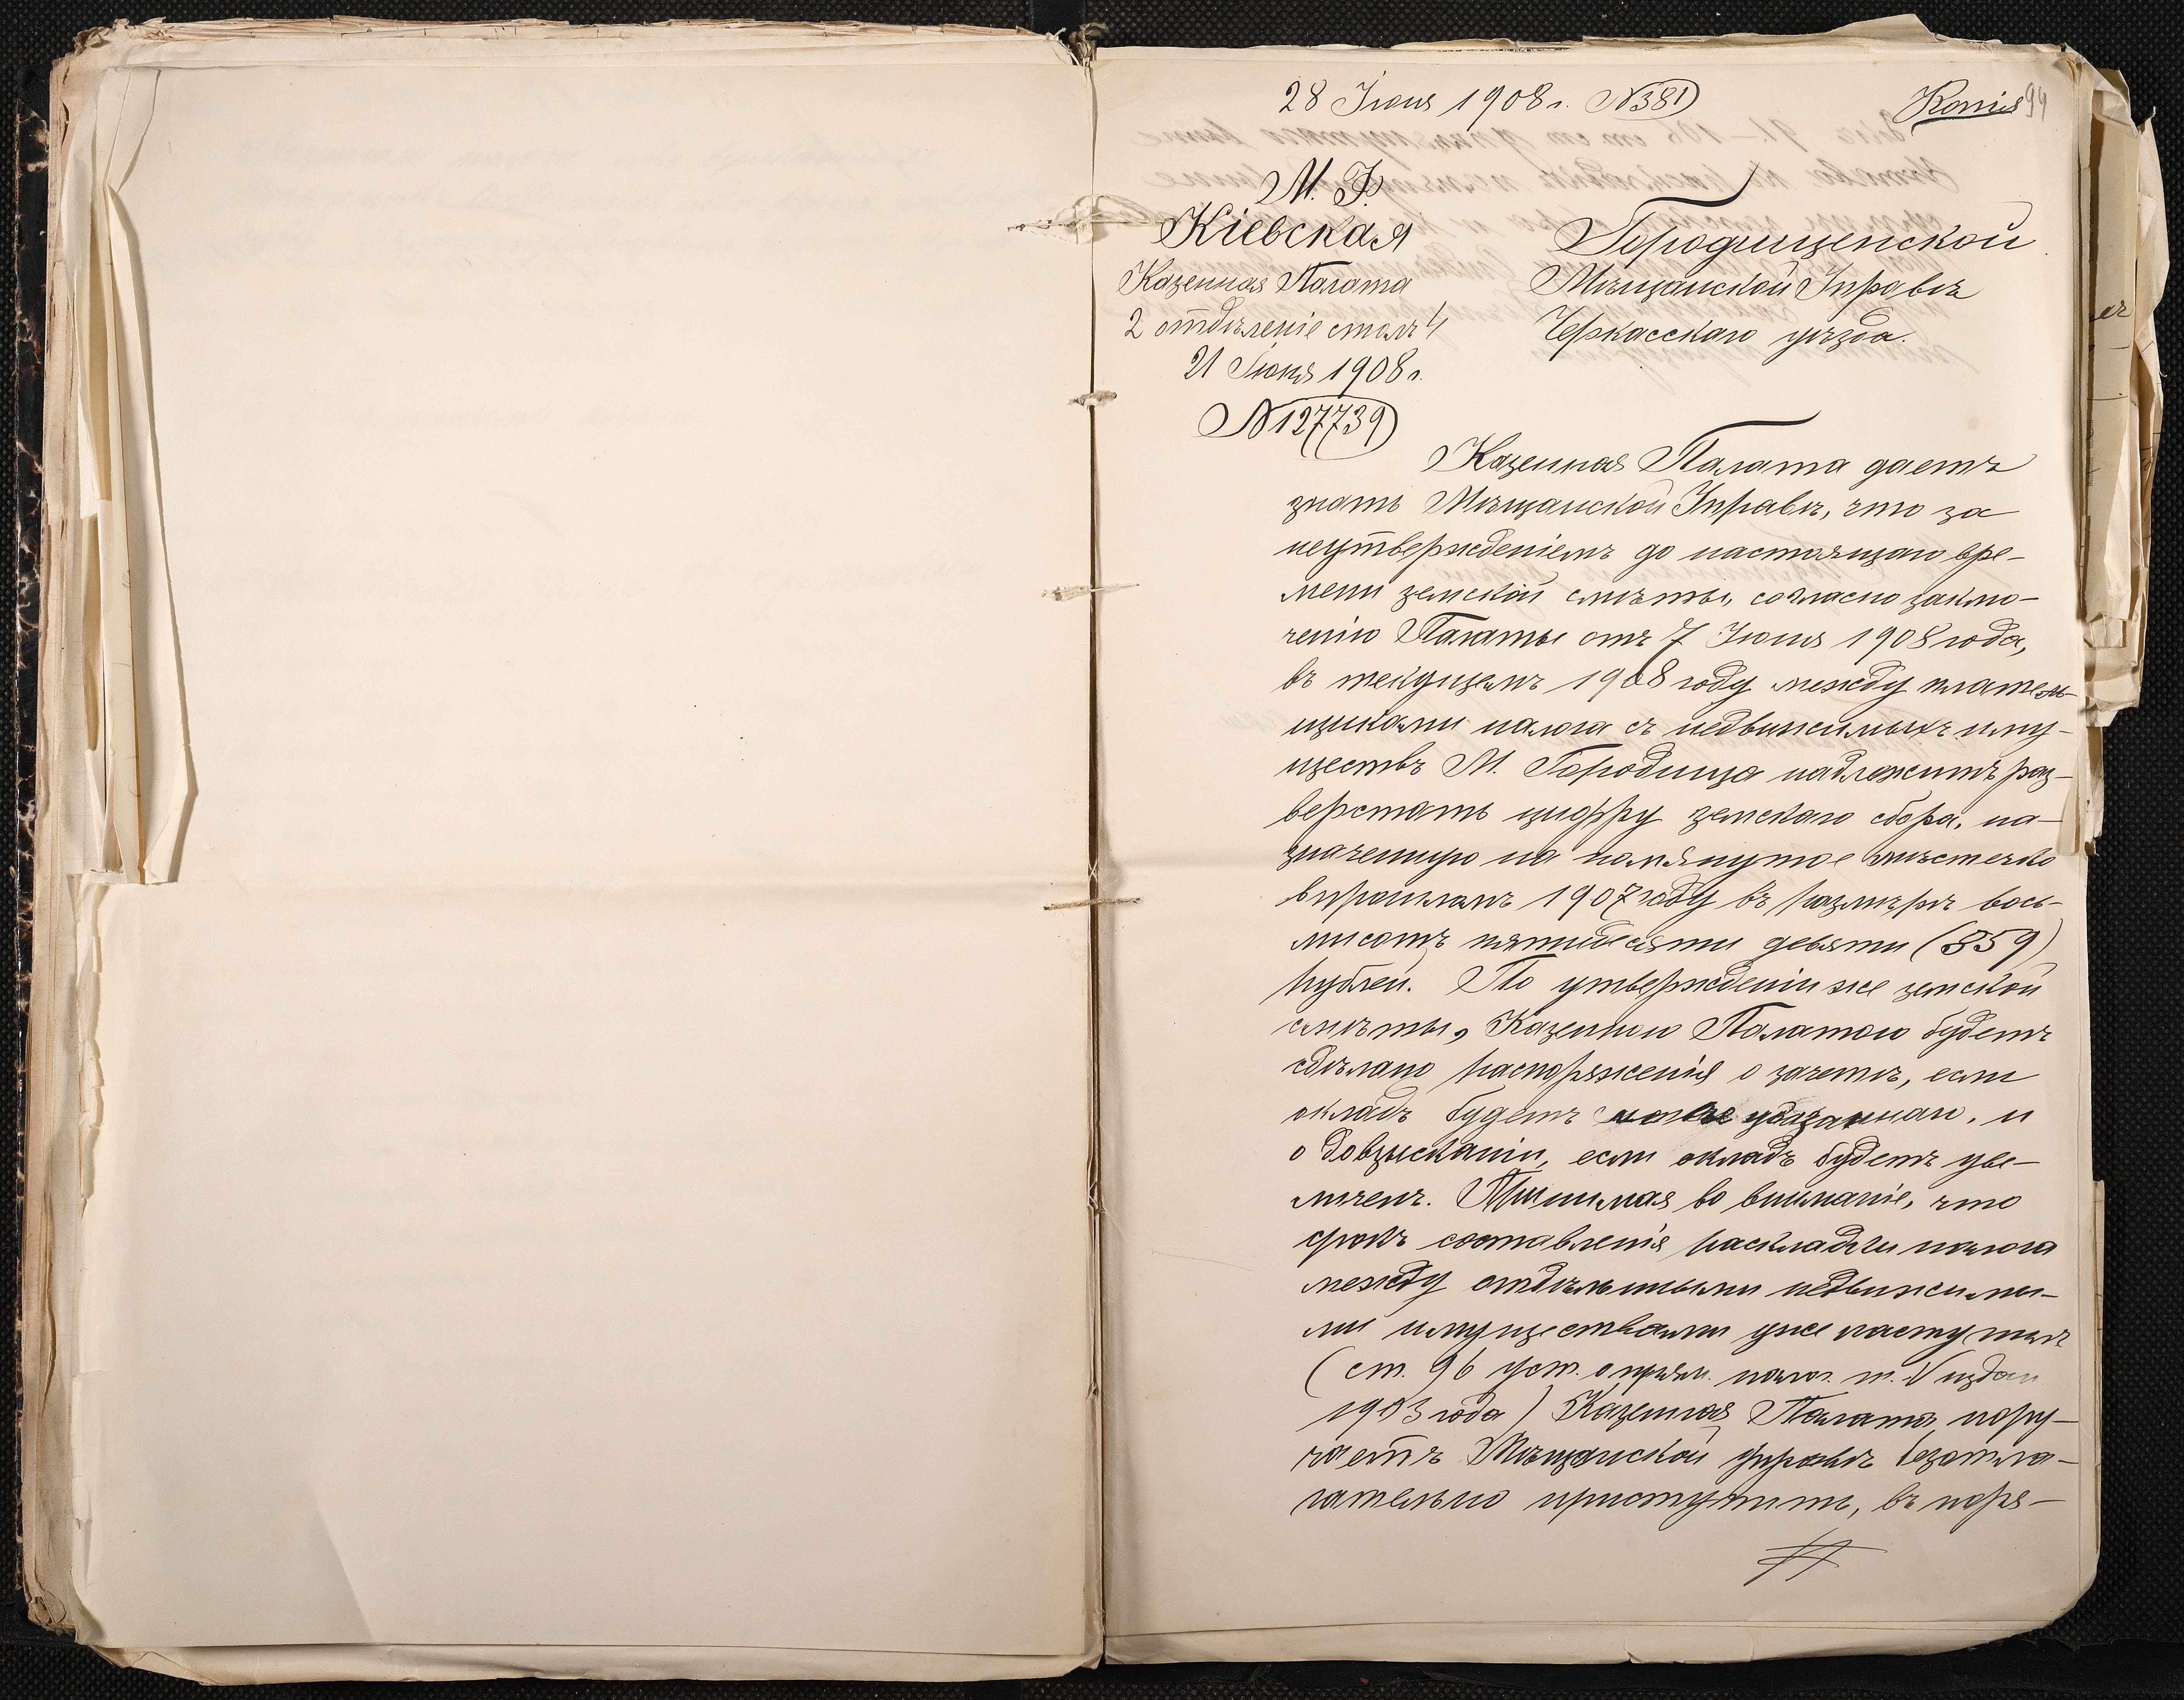 28 Іюня 1908 г. №381
Копия 94
М. Ф.
Кіевская
Казенная Палата
2 отдѣленіе столъ 4
21 Іюня 1908 г.
№127739
Городищенской
Мѣщанской Управѣ
Черкасскаго уѣзда.
Казенная Палата даетъ
знать Мѣщанской Управѣ, что за
неутвержденіемъ до настоящаго вре-
мени земской смѣты, согласно заклю-
ченію Палаты отъ 7 Іюня 1908 года,
въ текущемъ 1908 году между платель-
щиками налога съ недвижимыхъ иму-
ществъ М. Городища надлежитъ раз-
верстать цифру земскаго сбора, на-
значенную на помянутое мѣстечко
въ прошломъ 1907 году въ размѣрѣ вось-
мисотъ пятидесяти девяти (859)
рублей. По утвержденіи же земской
смѣты, Казенною Палатою будетъ
сдѣлано распоряженія о зачетѣ, если
окладъ будетъ менѣе указаннаго, и
о довзысканіи, если окладъ будетъ уве-
личенъ. Принимая во вниманіе, что
срокъ составленія раскладки налога
между отдѣльными недвижимы-
ми имуществами уже наступилъ
(ст. 96 уст. о прям. налог. т. V издан
1903 года) Казенная Палата пору-
чаетъ Мѣщанской управѣ безотла-
гательно приступить, въ поря-